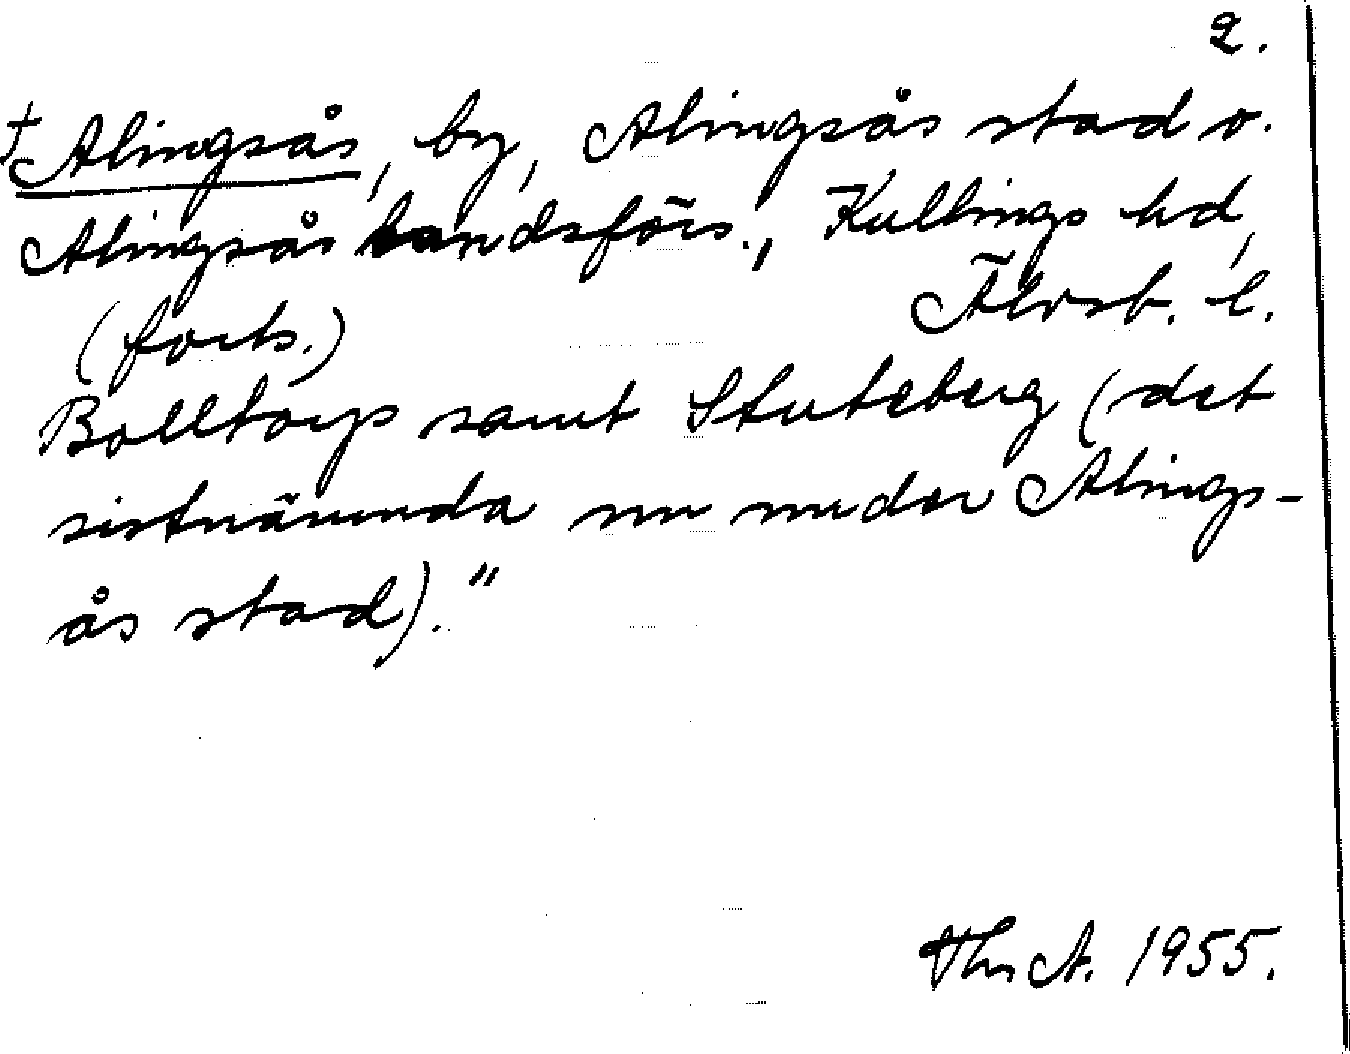 2.
† Alingsås, by, Alingsås stad o.
Alingsås landsförs., Kullings hd,
(forts.) Älvsb. l.
Bolltorp samt Stuteberg (det
sistnämnda nu under Alings-
ås stad)."
Ths A. 1955.